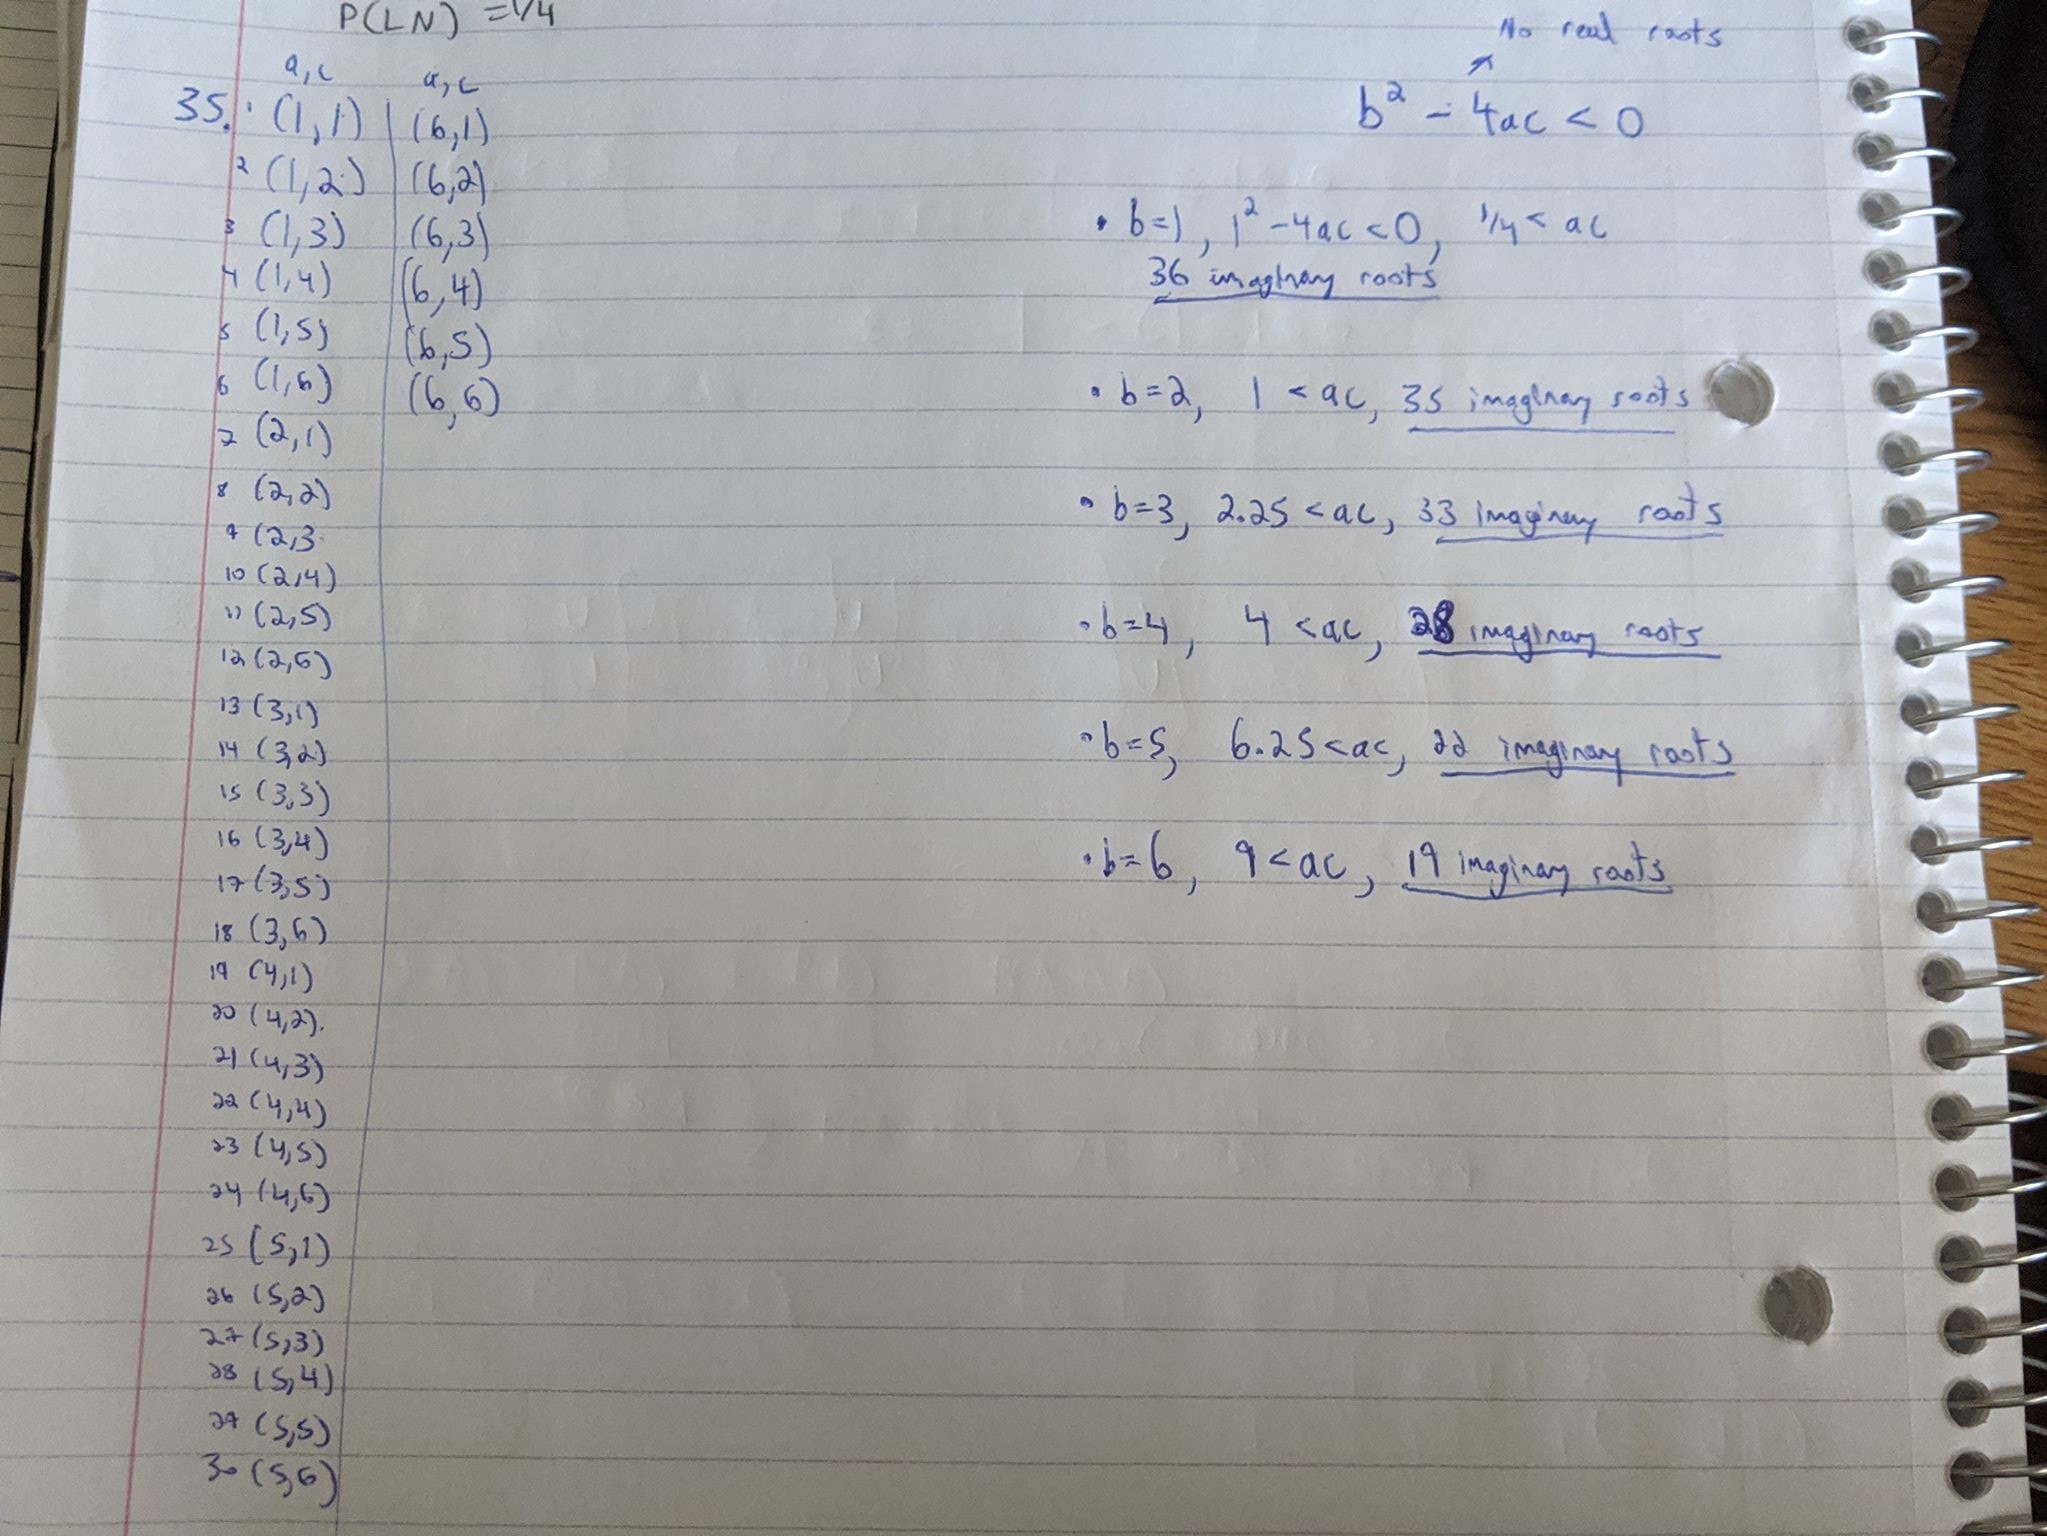 P(LN) = 1/4
No real roots
b² - 4ac < 0
a,c
35. 1 (1,1)
2 (1,2)
3 (1,3)
4 (1,4)
5 (1,5)
6 (1,6)
7 (2,1)
8 (2,2)
9 (2,3
10 (2,4)
11 (2,5)
12 (2,6)
13 (3,1)
14 (3,2)
15 (3,3)
16 (3,4)
17 (3,5)
18 (3,6)
19 (4,1)
20 (4,2).
21 (4,3)
22 (4,4)
23 (4,5)
24 (4,6)
25 (5,1)
26 (5,2)
27 (5,3)
28 (5,4)
29 (5,5)
30 (5,6)
a,c
(6,1)
(6,2)
(6,3)
(6,4)
(6,5)
(6,6)
• b=1, 1² - 4ac < 0, 1/4 < ac
36 imaginary roots
• b=2, 1 < ac, 35 imaginary roots
• b=3, 2.25 < ac, 33 imaginary roots
• b=4, 4 < ac, 28 imaginary roots
• b=5, 6.25 < ac, 22 imaginary roots
• b=6, 9 < ac, 19 imaginary roots